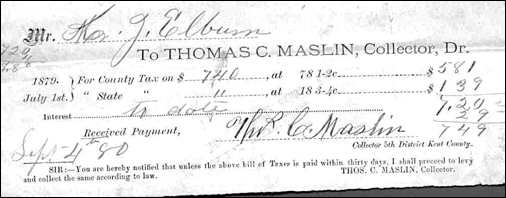 Mr. J. Elburn
To THOMAS C. MASLIN, Collector, Dr.
1879. } For County Tax on $ 740, at 78 1-2c. $ 581
July 1st. } " State " " at 18 3-4c. $ 139
7.20
Interest to date 29
Received Payment, Thos. C. Maslin 749
Sept 4th 80
Collector 5th District Kent County.
SIR:—You are hereby notified that unless the above bill of Taxes is paid within thirty days, I shall proceed to levy
and collect the same according to law. THOS. C. MASLIN, Collector.